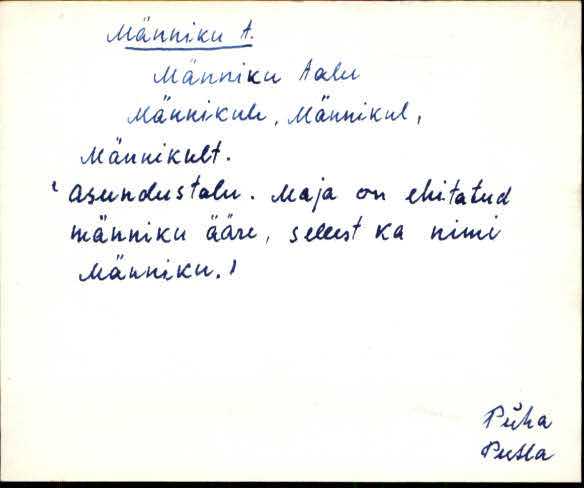 Männiku A.
Männiku Aalu
Männikule, Männikul,
Männikult.
‘Asundustalu. Maja on ehitatud
männiku ääre, sellest ka nimi
Männiku.’
Püha
Putla